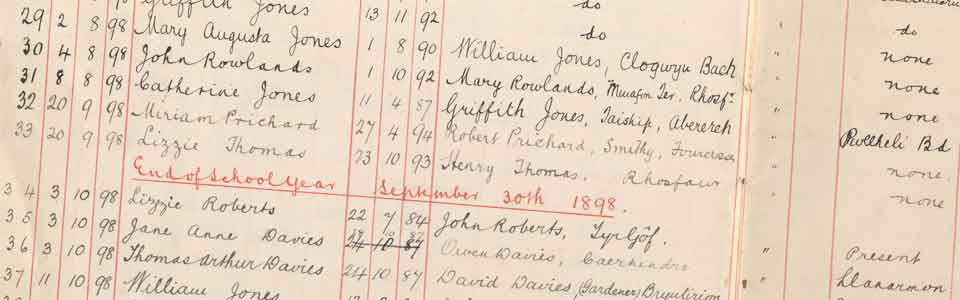 Griffith Jones 13 11 92 do
29 2 8 98 Mary Augusta Jones 1 8 90 do do
30 4 8 98 John Rowlands 1 10 92 William Jones, Clogwyn Bach none
31 8 8 98 Catherine Jones 11 4 87 Mary Rowlands, Ter. Rhosf. none
32 20 9 98 Miriam Prichard 27 4 94 Griffith Jones, Taiship, Abererch none
33 20 9 98 Lizzie Thomas 23 10 93 Robert Prichard, Smithy, Fourcrosses Pwllheli Bd
Henry Thomas. Rhosfawr none.
End of School Year September 30th 1898. none
34 3 10 98 Lizzie Roberts 22 7 84 John Roberts, Tyr Gôf.
35 3 10 98 Jane Anne Davies 24 10 87 Owen Davies, Present
36 3 10 98 Thomas Arthur Davies 24 10 87 David Davies, (Gardener) Llanarmon
37 11 10 98 William Jones